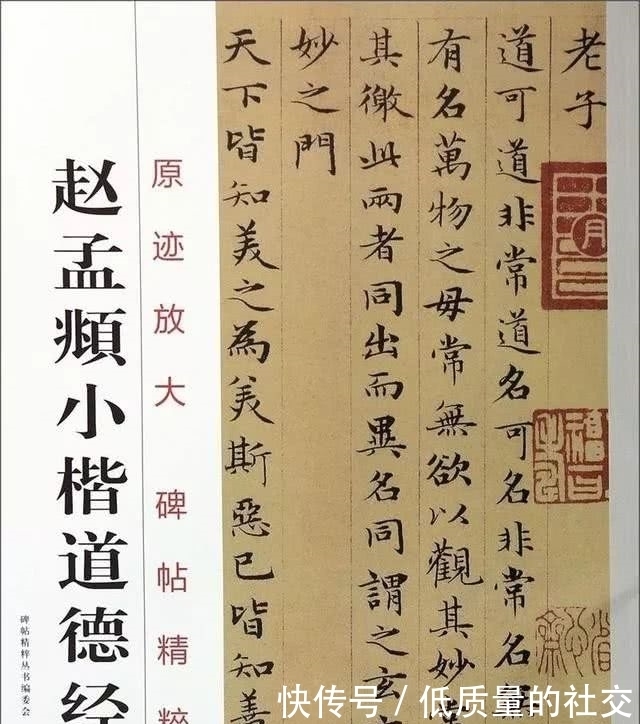 老子
道可道非常道名可名非常名
有名萬物之母常無欲以觀其妙
其徼此兩者同出而異名同謂之玄
妙之門
天下皆知美之為美斯惡已皆知善
原迹放大 碑帖精粹
赵孟頫小楷道德经
碑帖精粹丛书编委会
快传号 / 低质量的社交